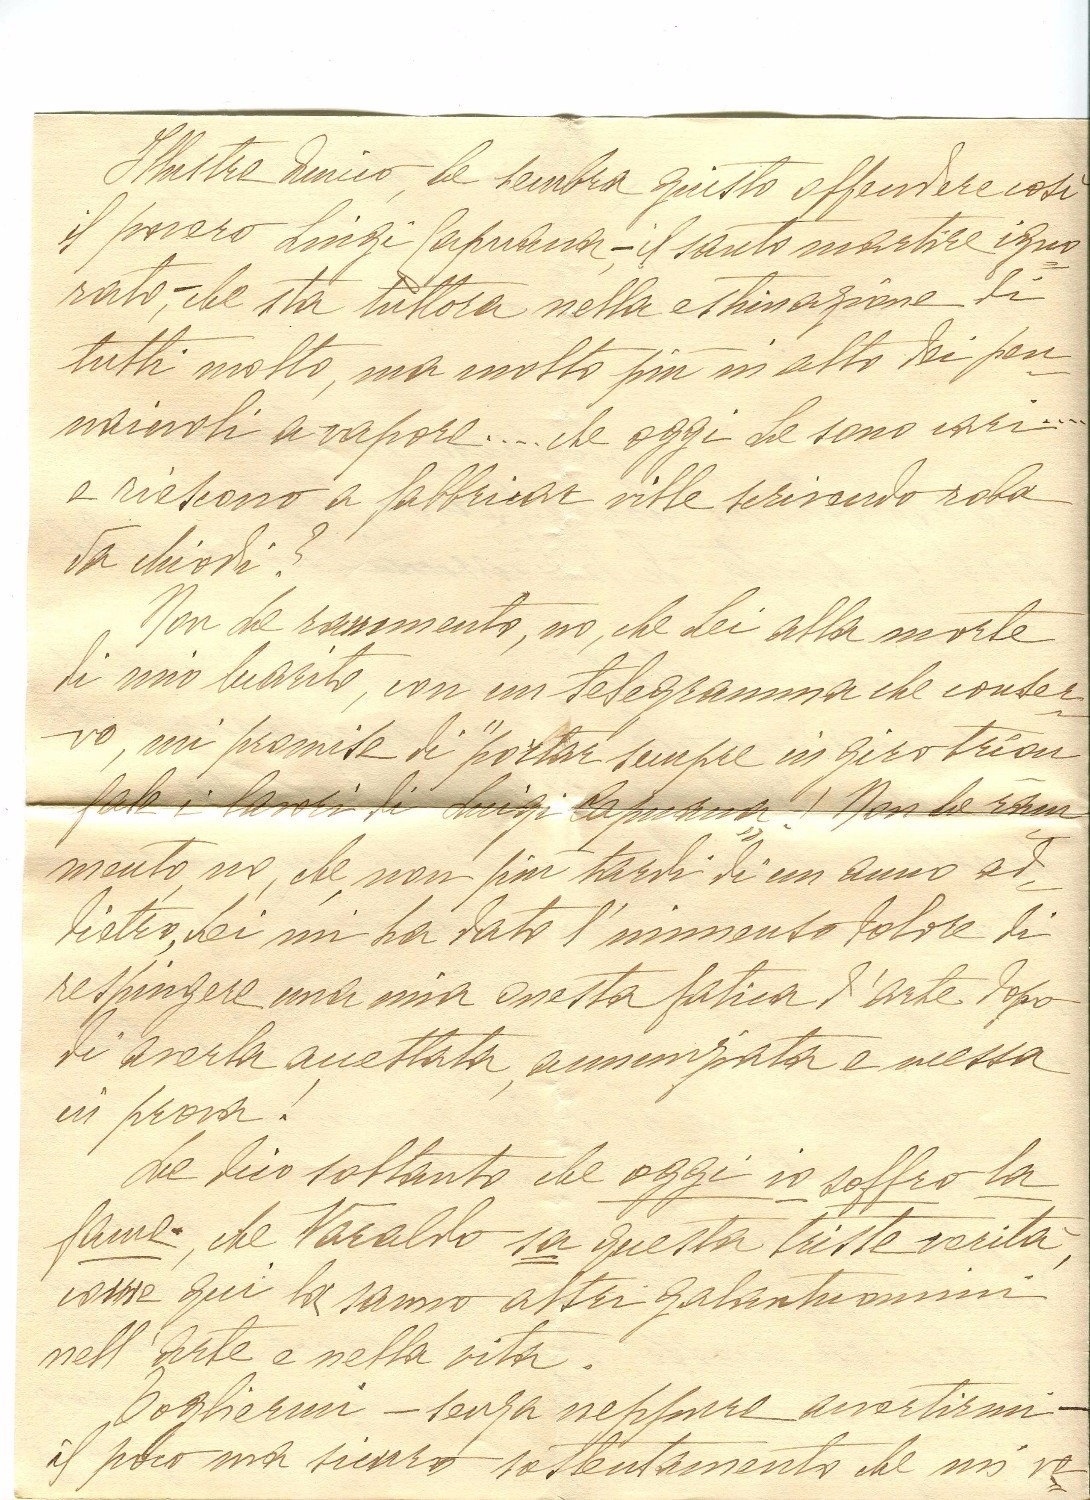 Illustre Amico, Le sembra giusto offendere così
il povero Luigi Capuana, – il santo martire igno
rato, – che sta tuttora nella estimazione di
tutti molto, ma molto più in alto dei pen-
naiuoli a vapore..... che oggi Le sono cari.....
e riescono a fabbricar ville scrivendo roba
da chiodi?
Non Le rammento, no, che Lei alla morte
di mio Marito, con un telegramma che conser-
vo, mi promise di "portar sempre in giro trion
fale i lavori di Luigi Capuana"! Non Le ram
mento, no, che, non più tardi di un anno ad-
dietro, Lei mi ha dato l'immenso dolore di
respingere una mia onesta fatica d'arte dopo
di averla accettata, annunziata e messa
in prova!
Le dico soltanto che oggi io soffro la
fame, che Varaldo sa questa triste verità,
come qui la sanno altri galantuomini
nell'arte e nella vita.
Togliermi – senza neppure avvertirmi –
il poco ma sicuro sostentamento che mi ve-